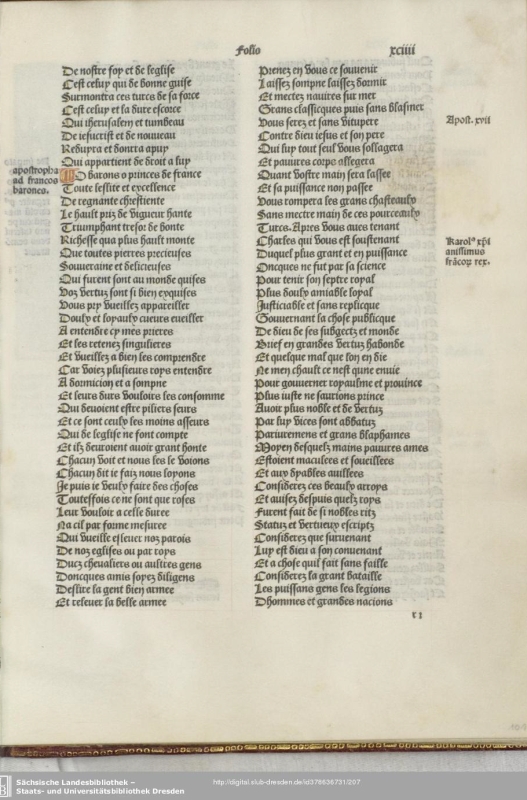 Folio xciiii
De nostre foy et de leglise
Cest celuy qui de bonne guise
Surmontra ces turcs de sa force
Cest celuy et la dure escorce
Qui iherusalem et tumbeau
De iesucrist et de nouueau
Reduyra et dontra apuy
Qui appartient de droit a luy
apostropha
ad francos
barones.
O barons o princes de france
Toute leslite et excellence
De regnante chrestiente
Le hault puz de vigueur hante
Triumphant tresor de bonte
Richesse qua plus hault monte
Que toutes pierres precieuses
Souueraine et delicieuses
Qui furent sont au monde quises
Voz vertuz sont si bien exquises
Vous pry vueillez appareiller
Doulx et loyaulx cueurs eueiller
A entendre cy mes prieres
Et les retenez singulieres
Et vueillez a bien les comprendre
Car voiez plusieurs roys entendre
A dormicion et a sompne
Et leurs durs vouloirs les consomme
Qui deuoient estre piliers seurs
Et ce sont ceulx les moins asseurs
Qui de leglise ne font compte
Et ilz deuroient auoir grant honte
Chacun voit et nous les le voions
Chacun dit ie faiz nous soyons
Je puis ie veulx faire des choses
Touteffois ce ne sont que roses
Leur vouloir a celle duree
Na cil par forme mesuree
Qui vueille esleuer noz parois
De noz eglises ou par roys
Ducz cheualiers ou aultres gens
Doncques amis soyez diligens
Deslire la gent bien armee
Et releuer la belle armee
Prenez en vous ce souuenir
Laissez sompne laissez dormir
Et mectez nauires sur mer
Grans classicques puis sans blasmer
Apost. xvii
Vous serez et sans vitupere
Contre dieu iesus et son pere
Qui luy tout seul vous sollagera
Et pauures corps allegera
Quant vostre main sera lassee
Et sa puissance non passee
Vous rompera les grans chasteaulx
Sans mectre main de ces pourceaulx
Turcs. Apres vous aues tenant
Charles qui vous est soustenant
Karolus xpi
anissimus
francorum rex.
Duquel plus grant et en puissance
Oncques ne fut par sa science
Pour tenir son septre royal
Plus doulx amiable loyal
Justiciable et sans replicque
Gouuernant la chose publicque
De dieu de ses subgectz et monde
Brief en grandes vertuz habonde
Et quelque mal que lon en die
Ne men chault ce nest qune enuie
Pour gouuerner royaulme et prouince
Plus iuste ne saurions prince
Auoir plus noble et de vertuz
Par luy vices sont abbatuz
Pariuremens et grans blaphames
Moyen desquelz mains pauures ames
Estoient maculees et soueillees
Et aux dyables auillees
Considerez ces beaulx arroys
Et auisez despuis quelz roys
Furent fait de si nobles ritz
Statuz et vertueux escriptz
Considerez que suruenant
Luy est dieu a son conuenant
Et a chose quil fait sans faille
Considerez la grant bataille
Les puissans gens les legions
Dhommes et grandes nacions
r i
Sächsische Landesbibliothek –
Staats- und Universitätsbibliothek Dresden
http://digital.slub-dresden.de/id378636731/207